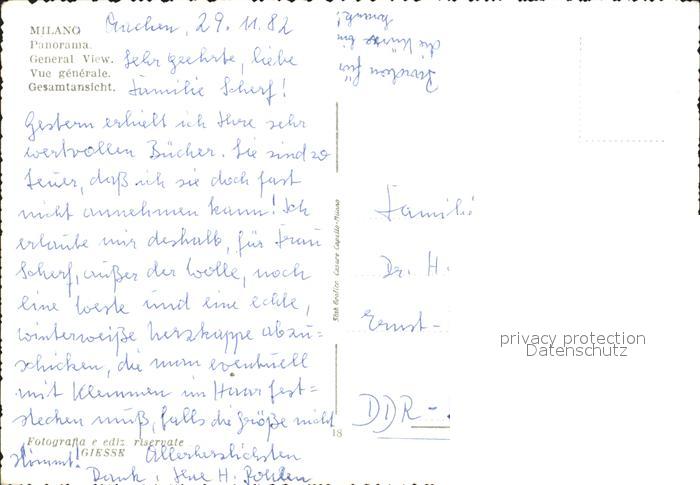 MILANO
Panorama.
General View.
Vue générale.
Gesamtansicht.
Aachen, 29.11.82
Sehr geehrte, liebe
Familie Scherf!
Gestern erhielt ich Ihre sehr
wertvollen Bücher. Sie sind so
teuer, daß ich sie doch fast
nicht annehmen kann! Ich
erlaube mir deshalb, für Frau
Scherf, außer der Wolle, noch
eine Weste und eine echte,
winterweiße Nerzkappe abzu=
schicken, die man eventuell
mit Klemmen im Haar fest=
stecken muß, falls die Größe nicht
stimmt! Allerherzlichsten
Dank, Ihre H. Pohlen
Fotografia e ediz. riservate
GIESSE
18
Verzeihen für
die Kürze bin
krank!
Stab. Grafico Cesare Capello-Milano
Famili
Dr. H.
Ernst-
DDR-
privacy protection
Datenschutz